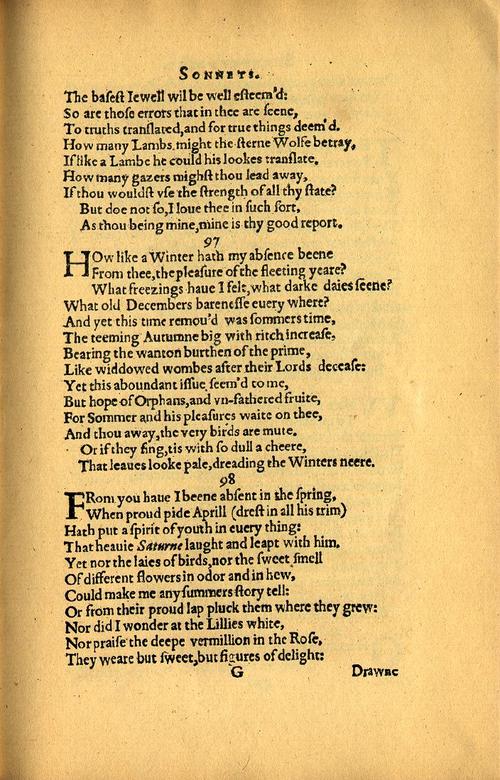 SONNETS.
The baſeſt Iewell wil be well eſteem'd:
So are thoſe errors that in thee are ſeene,
To truths tranſlated, and for true things deem'd.
How many Lambs might the ſterne Wolfe betray,
If like a Lambe he could his lookes tranſlate.
How many gazers mighſt thou lead away,
If thou wouldſt vſe the ſtrength of all thy ſtate?
But doe not ſo, I loue thee in ſuch ſort,
As thou being mine, mine is thy good report.
97
HOw like a Winter hath my abſence beene
From thee, the pleaſure of the fleeting yeare?
What freezings haue I felt, what darke daies ſeene?
What old Decembers bareneſſe euery where?
And yet this time remou'd was ſommers time,
The teeming Autumne big with ritch increaſe,
Bearing the wanton burthen of the prime,
Like widdowed wombes after their Lords deceaſe:
Yet this aboundant iſſue ſeem'd to me,
But hope of Orphans, and vn-fathered fruite,
For Sommer and his pleaſures waite on thee,
And thou away, the very birds are mute.
Or if they ſing, tis with ſo dull a cheere,
That leaues looke pale, dreading the Winters neere.
98
FRom you haue I beene abſent in the ſpring,
When proud pide Aprill (dreſt in all his trim)
Hath put a ſpirit of youth in euery thing:
That heauie Saturne laught and leapt with him.
Yet nor the laies of birds, nor the ſweet ſmell
Of different flowers in odor and in hew,
Could make me any ſummers ſtory tell:
Or from their proud lap pluck them where they grew:
Nor did I wonder at the Lillies white,
Nor praiſe the deepe vermillion in the Roſe,
They weare but ſweet, but figures of delight:
G Drawne